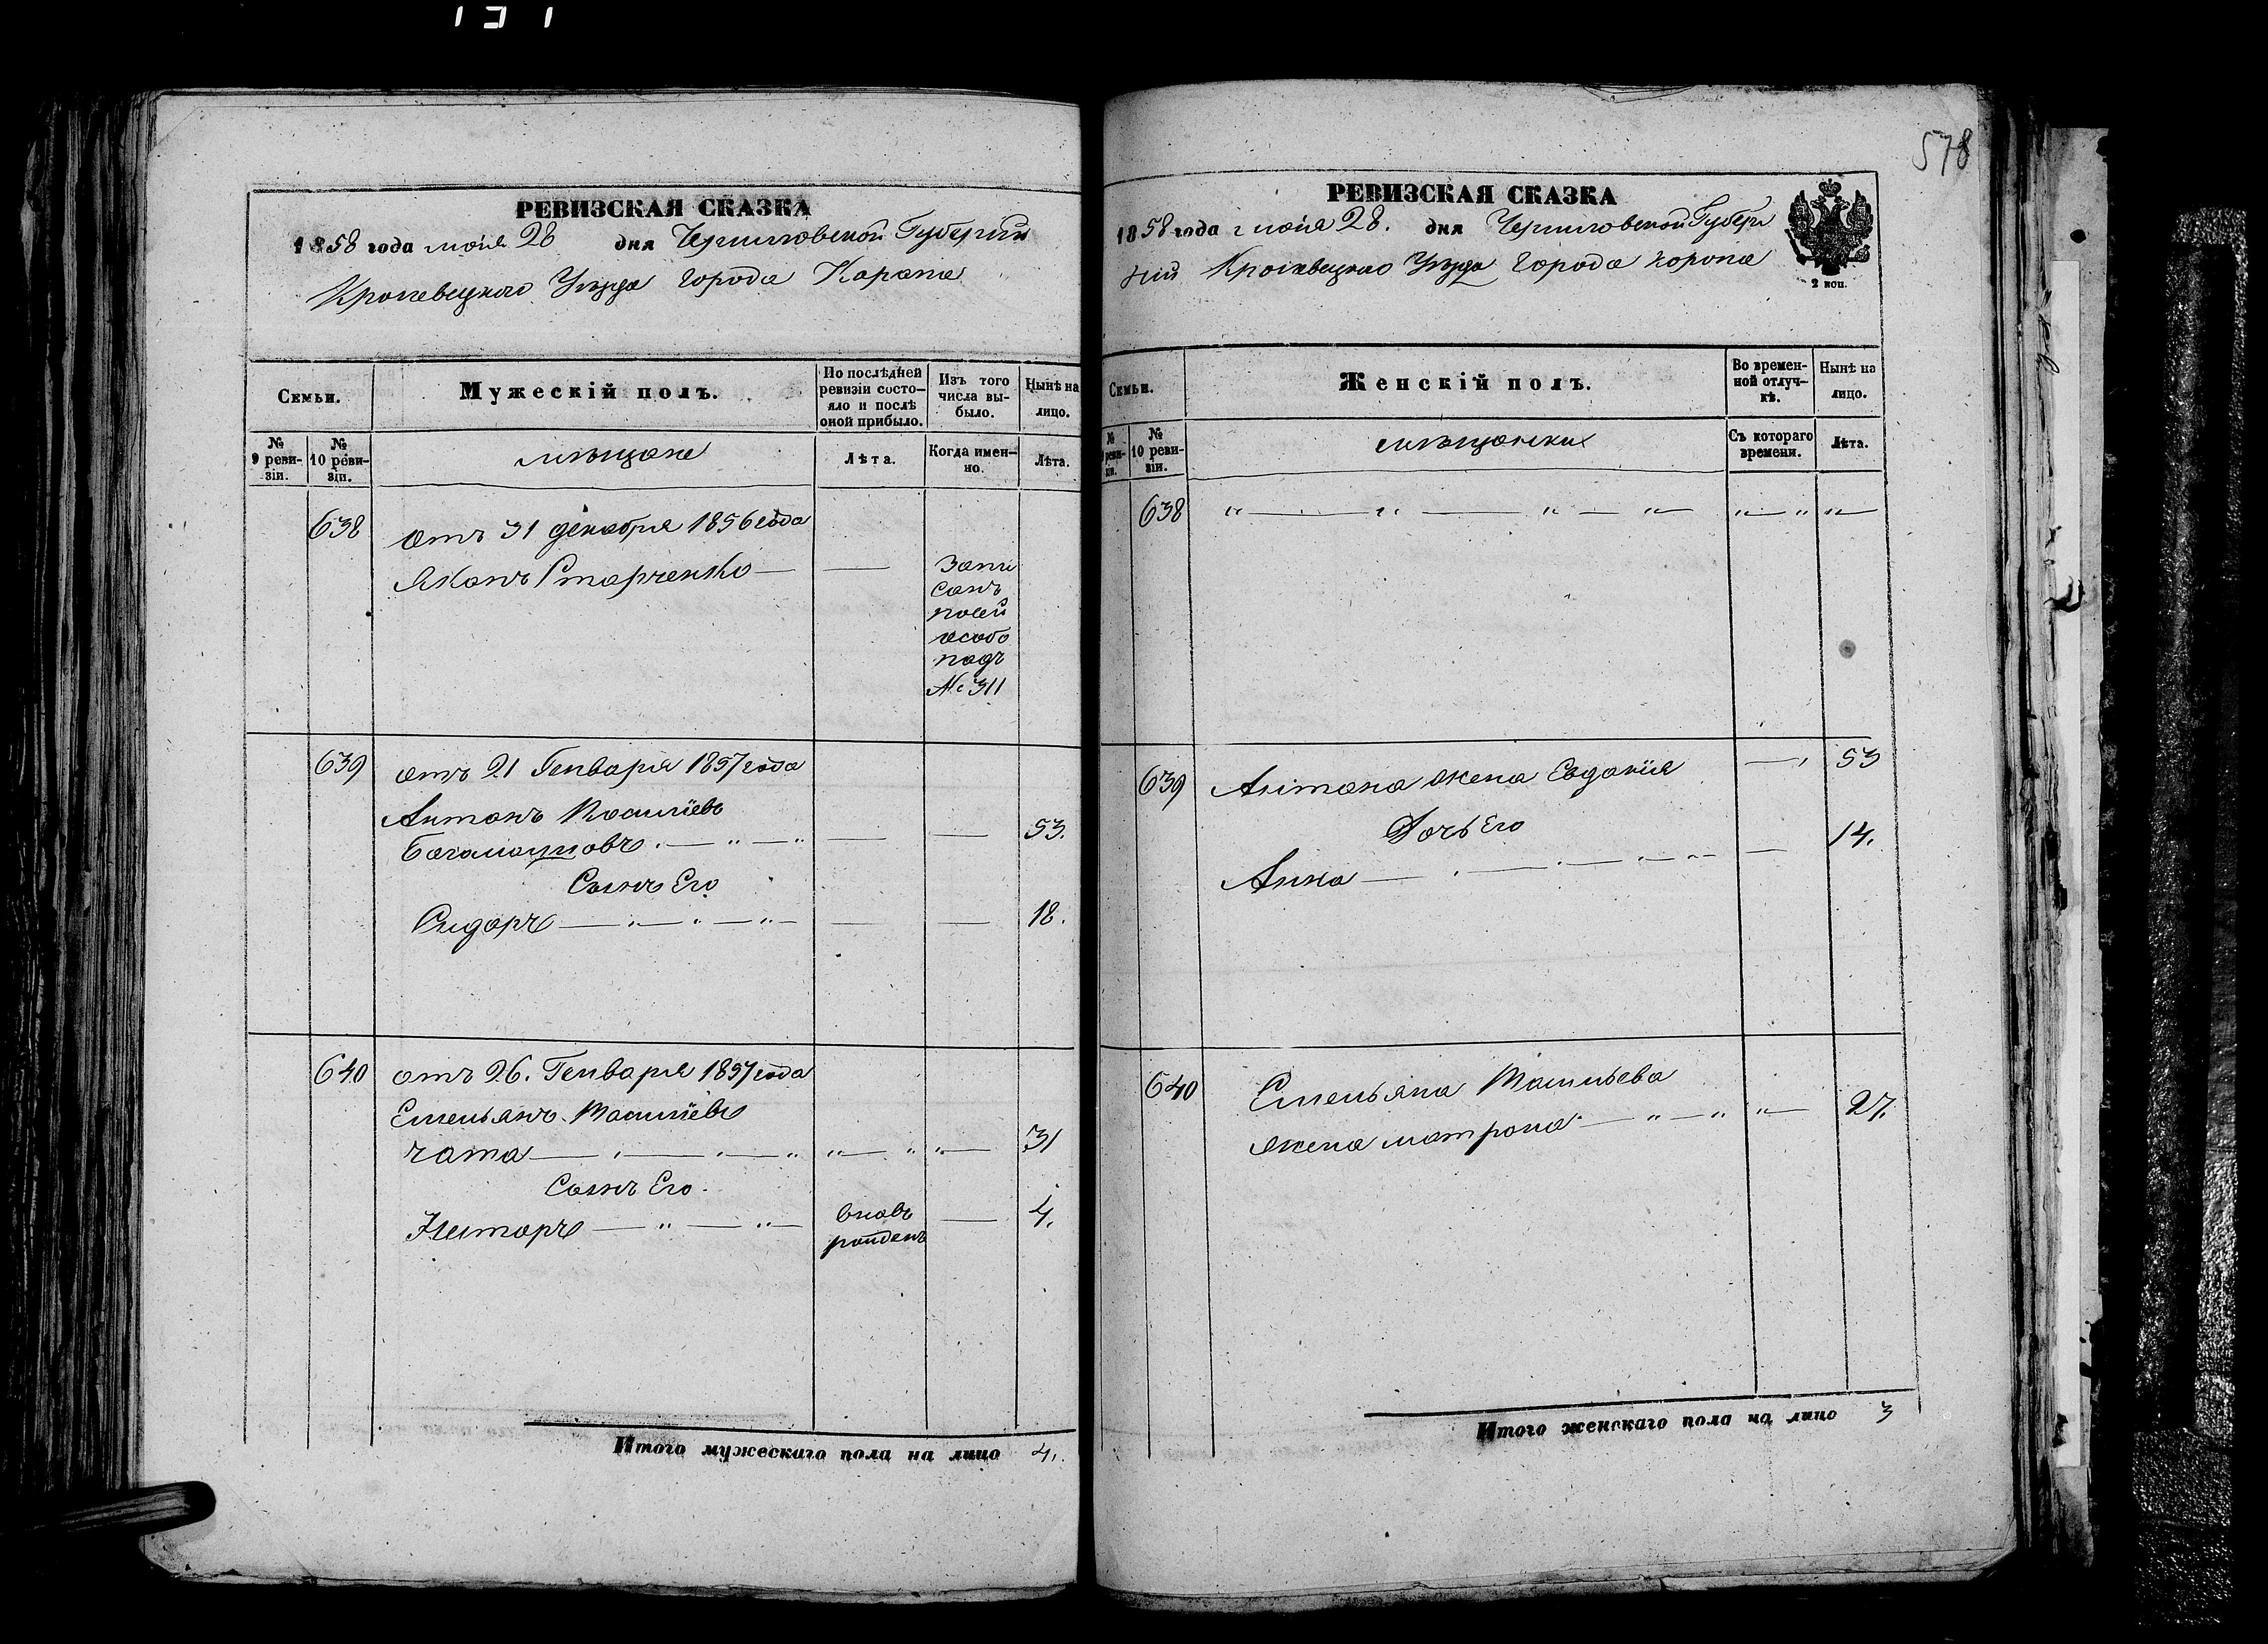 578
РЕВИЗСКАЯ СКАЗКА
1858 года маия 28 дня Черниговской Губернии
Кролевецкого Уѣзда города Коропа
Семьи.
Мужескій полъ.
По послѣдней ревизіи состо-
яло и послѣ
оной прибыло.
Изъ того
числа вы-
было.
Нынѣ на
лицо.
№
9 реви-
зіи.
№
10 реви-
зіи.
мѣщане
Лѣта.
Когда имен-
но.
Лѣта.
638 отъ 31 декабря 1856 года
Яковъ Старченко —
Запи
санъ
посей
особо
подъ
№ 311
639 отъ 21 Генваря 1857 года
Антонъ Василіевъ
53.
Сынъ Его
Сидоръ — 18.
640 отъ 26. Генваря 1857 года
Емельянъ Василіевъ
чата — 31
Сынъ Его.
Несторъ — вновь — 4.
рожденъ
Итого мужескаго пола на лицо 4.
РЕВИЗСКАЯ СКАЗКА
1858 года маия 28. дня Черниговской Губер
ніи Кролевецкаго Уѣзда города коропа
2 коп.
Семьи.
Женскій полъ.
Во времен-
ной отлуч-
кѣ.
Нынѣ на
лицо.
№
9 реви-
зіи.
№
10 реви-
зіи.
мѣщанки
Съ котораго
времени.
Лѣта.
638 " — " — " — " — " — " " —
639 Антона жена Евдокія — 53
Дочь Его
Анна — 14.
640 Емельяна Васильева
жена матрона — " — " " — 27.
Итого женскаго пола на лицо 3